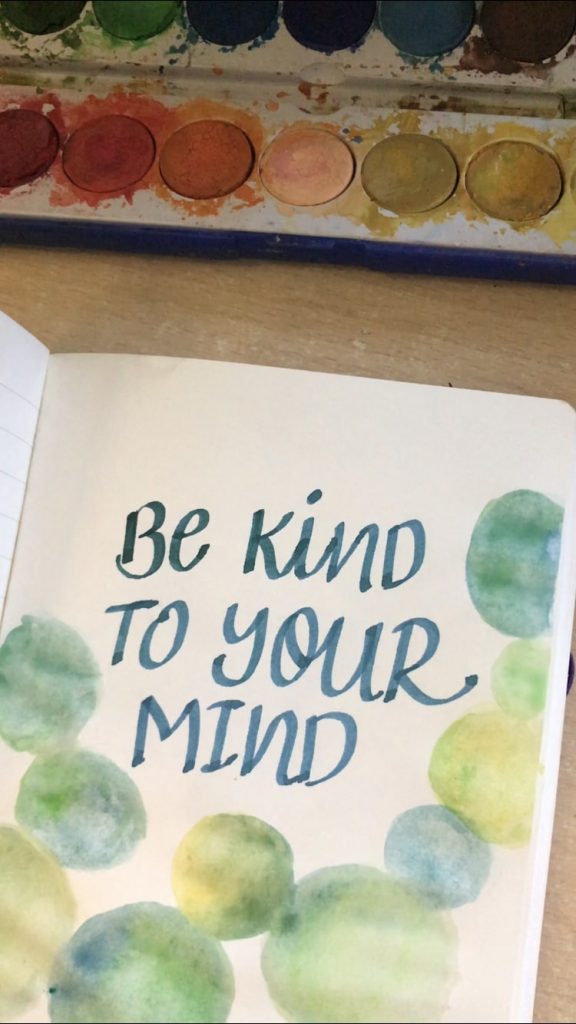 Be KiND
TO YOUR
MIND